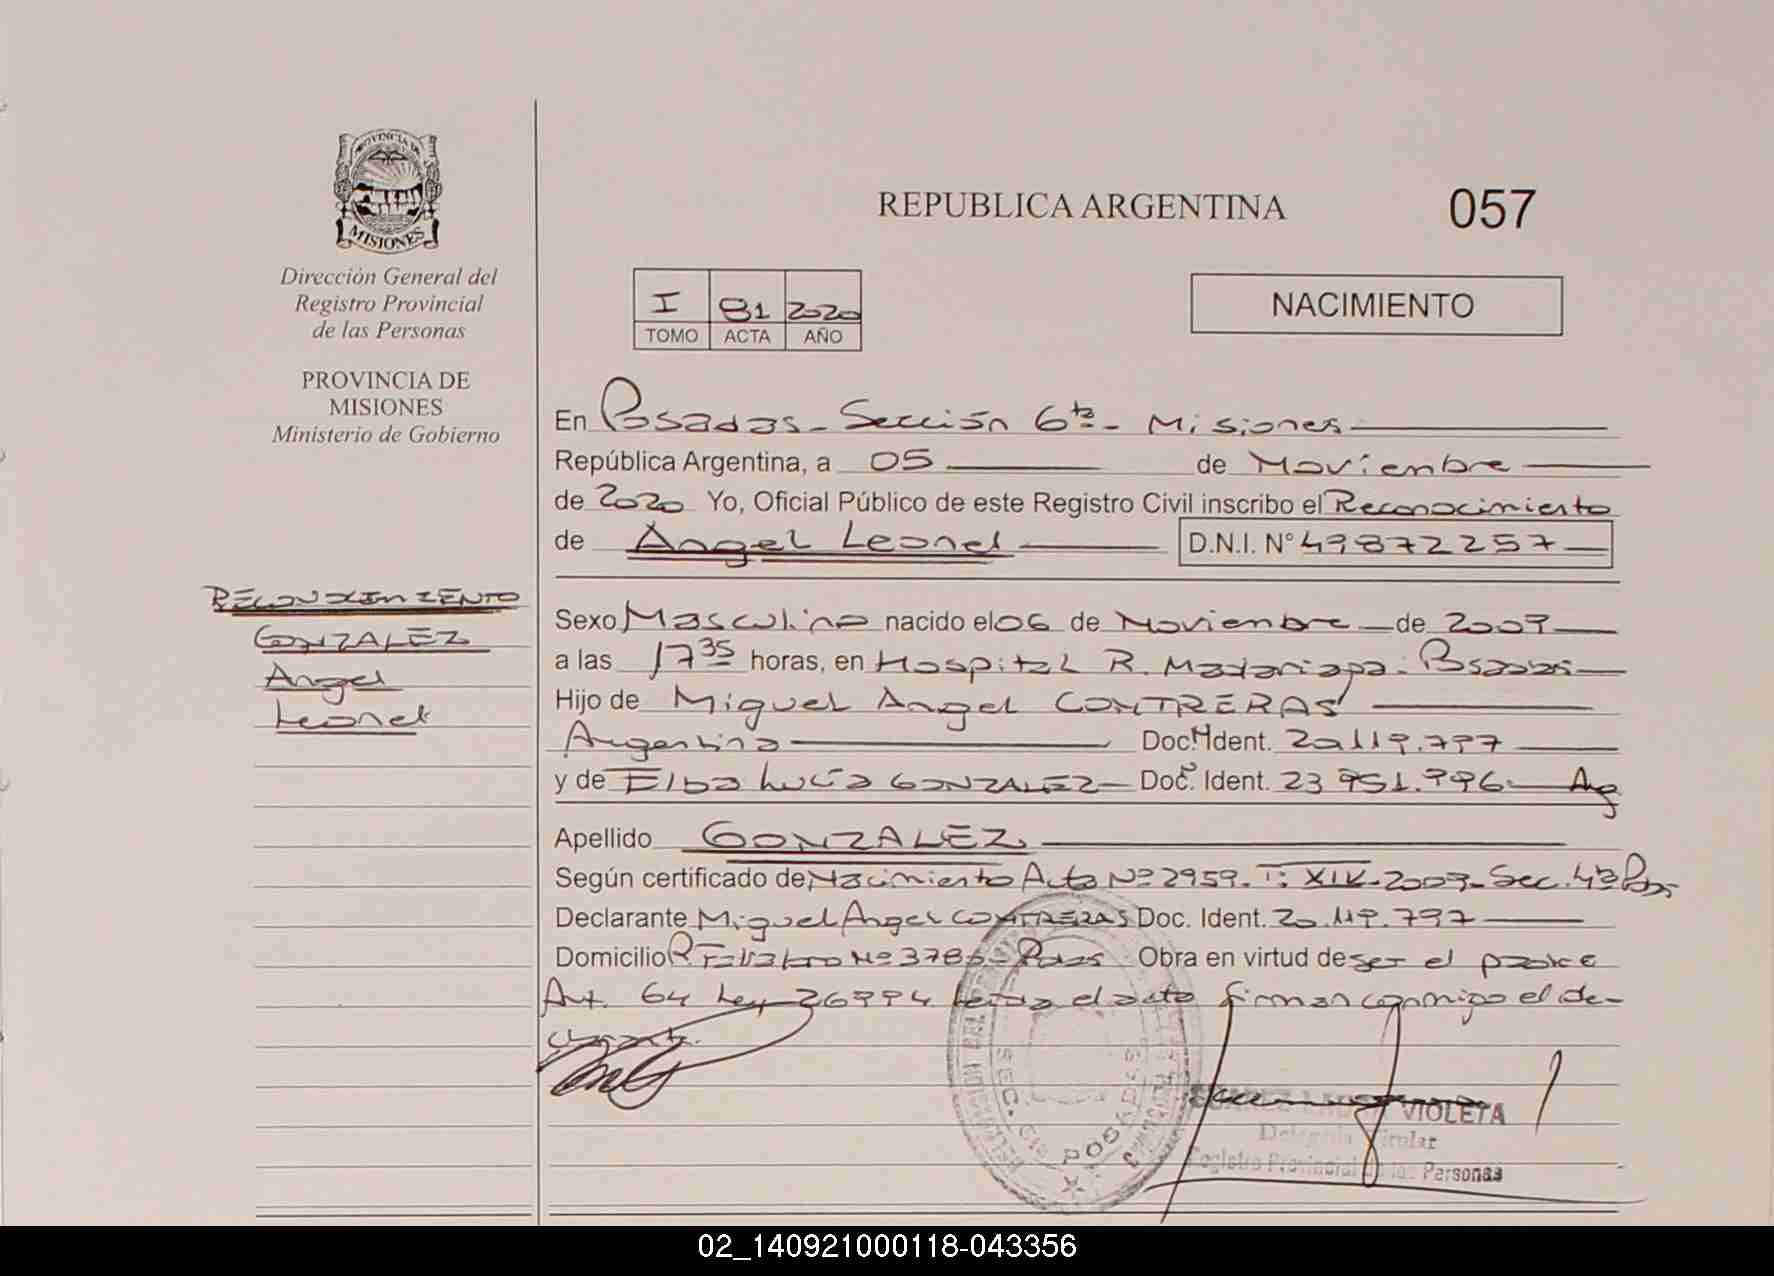 PROVINCIA DE
MISIONES
Dirección General del
Registro Provincial
de las Personas
PROVINCIA DE
MISIONES
Ministerio de Gobierno
REPUBLICA ARGENTINA
057
I 81 2020
TOMO ACTA AÑO
NACIMIENTO
En Posadas - Sección 6ta - Misiones
República Argentina, a 05 de Noviembre
de 2020 Yo, Oficial Público de este Registro Civil inscribo el Reconocimiento
de Angel Leonel D.N.I. N° 49872257
RECONOCIMIENTO
GONZALEZ
Angel
Leonel
Sexo Masculino nacido el 06 de Noviembre de 2009
a las 17 35 horas, en Hospital R. Madariaga - Posadas
Hijo de Miguel Angel CONTRERAS
Argentino Doc. Ident. 20.119.797
y de Elba Lucía GONZALEZ Doc. Ident. 23 951.996 - Arg
Apellido GONZALEZ
Según certificado de Nacimiento Acta Nº 2959 - T: XIV - 2009 - Sec. 4ta Pdas
Declarante Miguel Angel CONTRERAS Doc. Ident. 20.119.797
Domicilio Nº 3786 - Pdas Obra en virtud de ser el padre
Art. 64 Ley 26994 Leida el acta firman conmigo el de-
clarante.
SEC. 6ta POSADAS
SUAREZ VIOLETA
Delegada Titular
Registro Provincial de las Personas
02_140921000118-043356